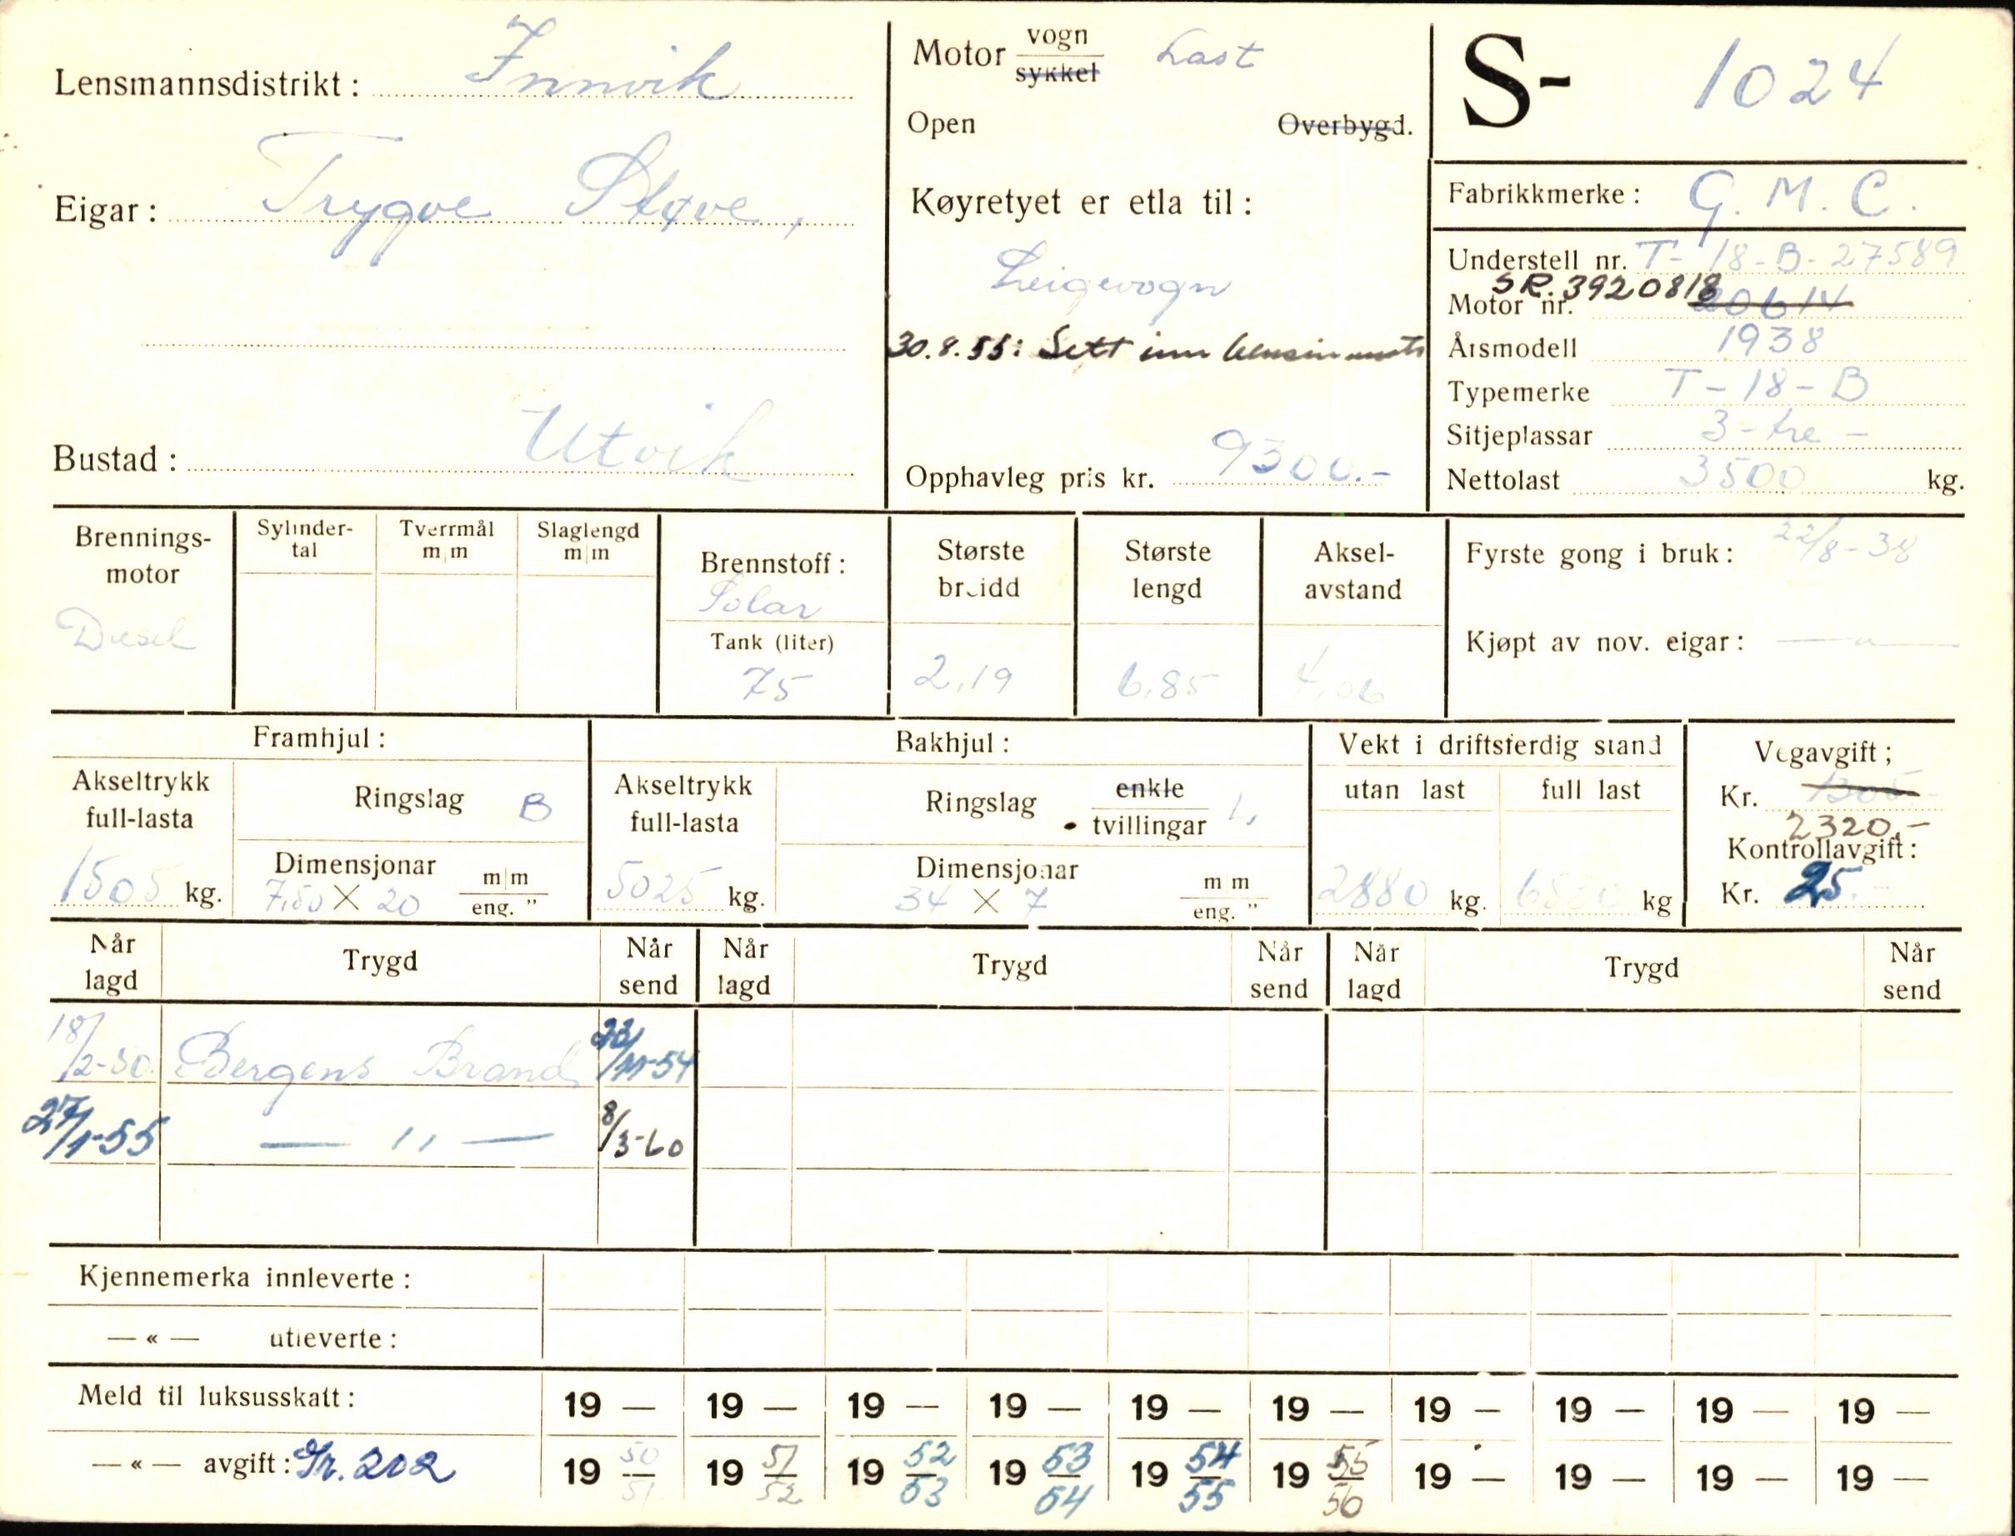 Lensmannsdistrikt: Innvik
Eigar: Trygve Støve,
Bustad: Utvik
Motor vogn Last
sykkel
Open Overbygd.
Køyretyet er etla til:
Leigevogn
30.8.55: Sett inn bensinmotor
Opphavleg pris kr. 9300.-
S- 1024
Fabrikkmerke: G. M. C.
Understell nr. T-18-B-27589
SR. 3920818
Motor nr. 20614
Årsmodell 1938
Typemerke T-18-B
Sitjeplassar 3-tre-
Nettolast 3500 kg.
Brennings-
motor
Diesel
Sylinder-
tal
Tverrmål
m/m
Slaglengd
m/m
Brennstoff:
Solar
Tank (liter)
75
Største
breidd
2,19
Største
lengd
6,85
Aksel-
avstand
4,06
Fyrste gong i bruk: 22/8-38
Kjøpt av nov. eigar: — „ —
Framhjul:
Akseltrykk
full-lasta
1505 kg.
Ringslag B
Dimensjonar
7,50 X 20 m/m
eng. "
Bakhjul:
Akseltrykk
full-lasta
5025 kg.
Ringslag enkle
tvillingar L,
Dimensjonar
34 X 7 m/m
eng. "
Vekt i driftsferdig stand
utan last
2880 kg.
full last
6530 kg
Vegavgift;
Kr. 1305.-
2320,-
Kontrollavgift:
Kr. 25.-
Når
lagd Trygd Når
send Når
lagd Trygd Når
send Når
lagd Trygd Når
send
18/2-50. Bergens Brand 23/11-54
27/1-55 — ,, — 8/3-60
Kjennemerka innleverte:
— « — utleverte:
Meld til luksusskatt: 19 — 19 — 19 — 19 — 19 — 19 — 19 — 19 — 19 — 19 —
— « — avgift: Gr. 202 19 50/51 19 51/52 19 52/53 19 53/54 19 54/55 19 55/56 19 — 19 — 19 — 19 —